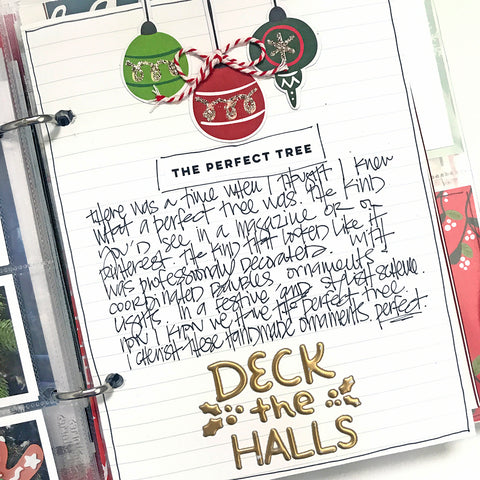 THE PERFECT TREE
there was a time when I thought I knew
what a perfect tree was. the kind
you'd see in a magazine or on
pinterest. the kind that looked like it
was professionally decorated. with
coordinated baubles ornaments &
lights. in a festive and stylish scheme.
now I know we have the perfect tree.
I cherish these handmade ornaments. perfect.
DECK
the
HALLS